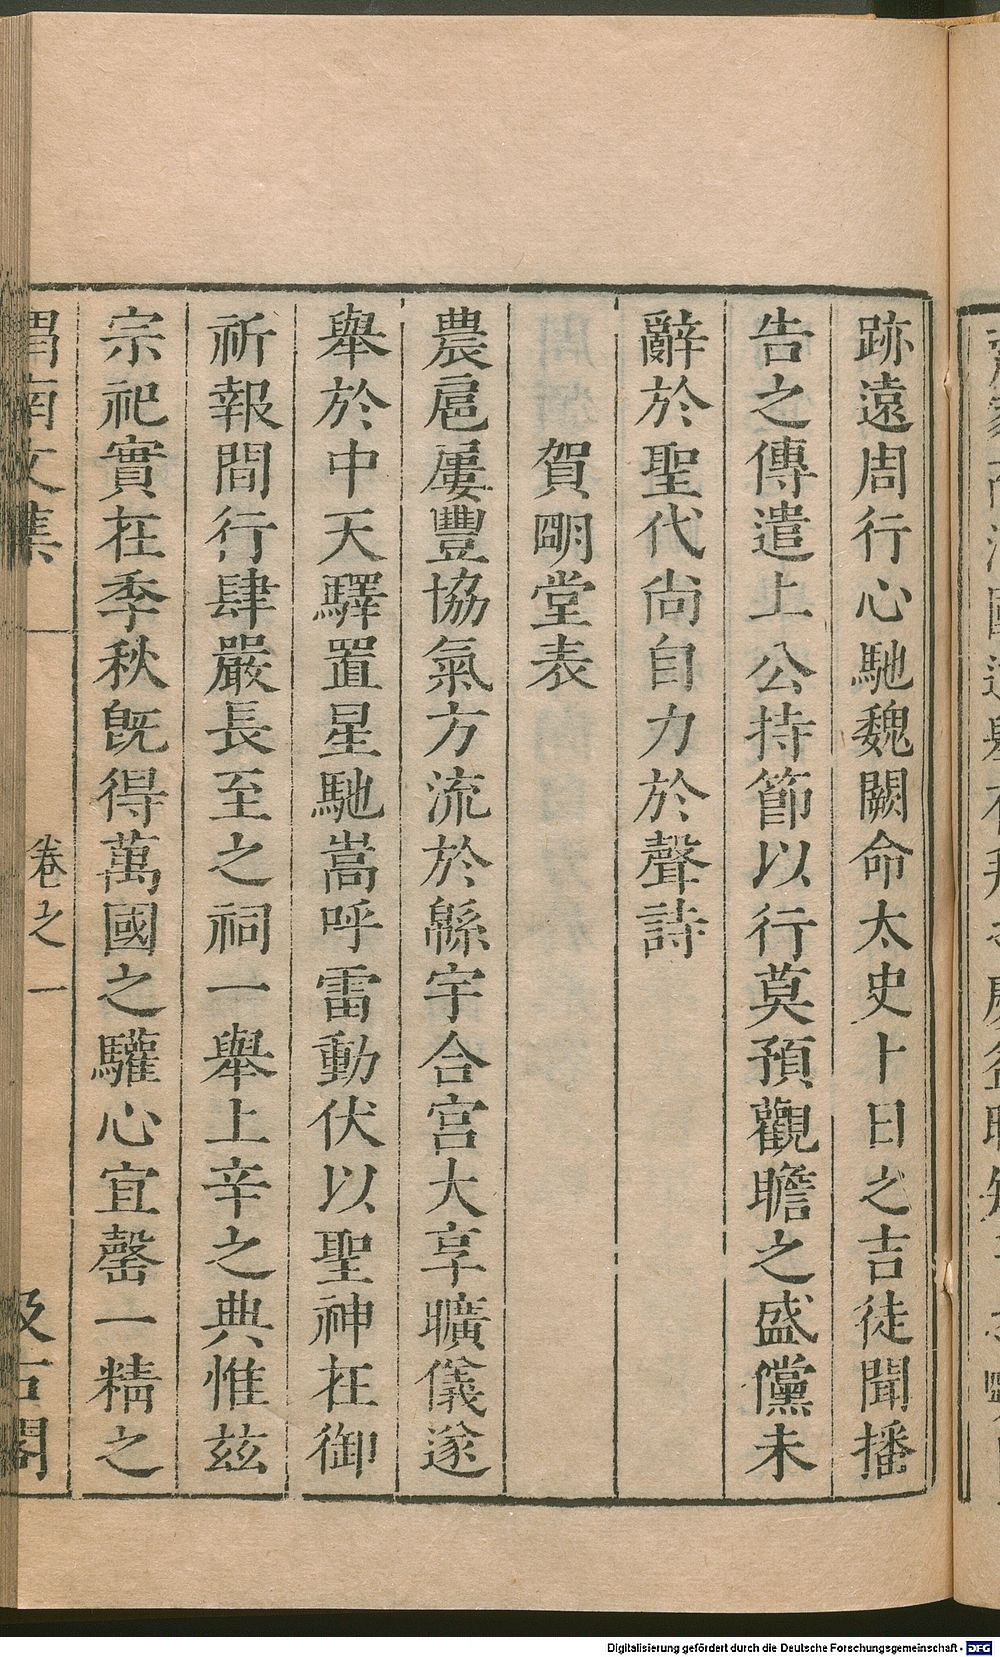 跡遠周行心馳魏闕命太史卜日之吉徒聞播
告之傳遣上公持節以行莫預觀瞻之盛儻未
辭於聖代尚自力於聲詩
賀明堂表
農扈屢豐協氣方流於緜宇合宮大享曠儀遂
舉於中天驛置星馳嵩呼雷動伏以聖神在御
祈報間行肆嚴長至之祠一舉上辛之典惟茲
宗祀實在季秋旣得萬國之驩心宜罄一精之
渭南文集
卷之一
汲古閣
Digitalisierung gefördert durch die Deutsche Forschungsgemeinschaft - DFG